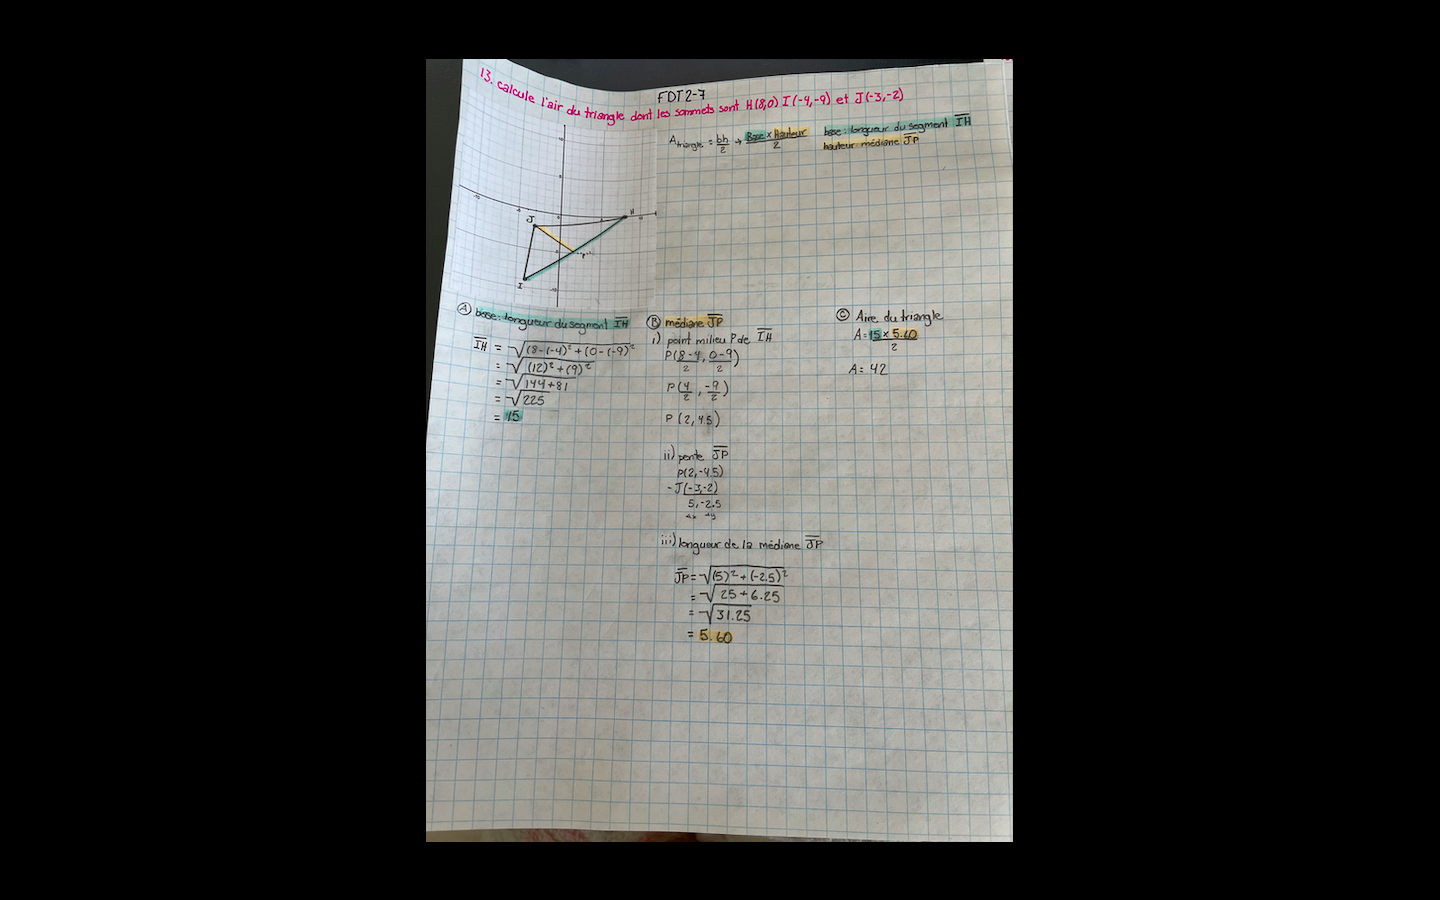 FDT2-7
13. Calcule l'air du triangle dont les sommets sont H(8,0) I(-4,-9) et J(-3,-2)
A triangle = bh/2 → Base x Hauteur/2
base: longueur du segment IH
hauteur: médiane JP
J
H
P
I
Ⓐ base: longueur du segment IH
IH = √(8-(-4)² + (0-(-9)²
= √(12)² + (9)²
= √144+81
= √225
= 15
Ⓑ médiane JP
i) point milieu P de IH
P(8-4/2, 0-9/2)
P(4/2, -9/2)
P (2, 4.5)
ii) pente JP
P(2,-4.5)
- J(-3,-2)
5, -2.5
Δx Δy
iii) longueur de la médiane JP
JP = √(5)² + (-2.5)²
= √25 + 6.25
= √31.25
= 5.60
Ⓒ Aire du triangle
A = 15 x 5.60/2
A = 42